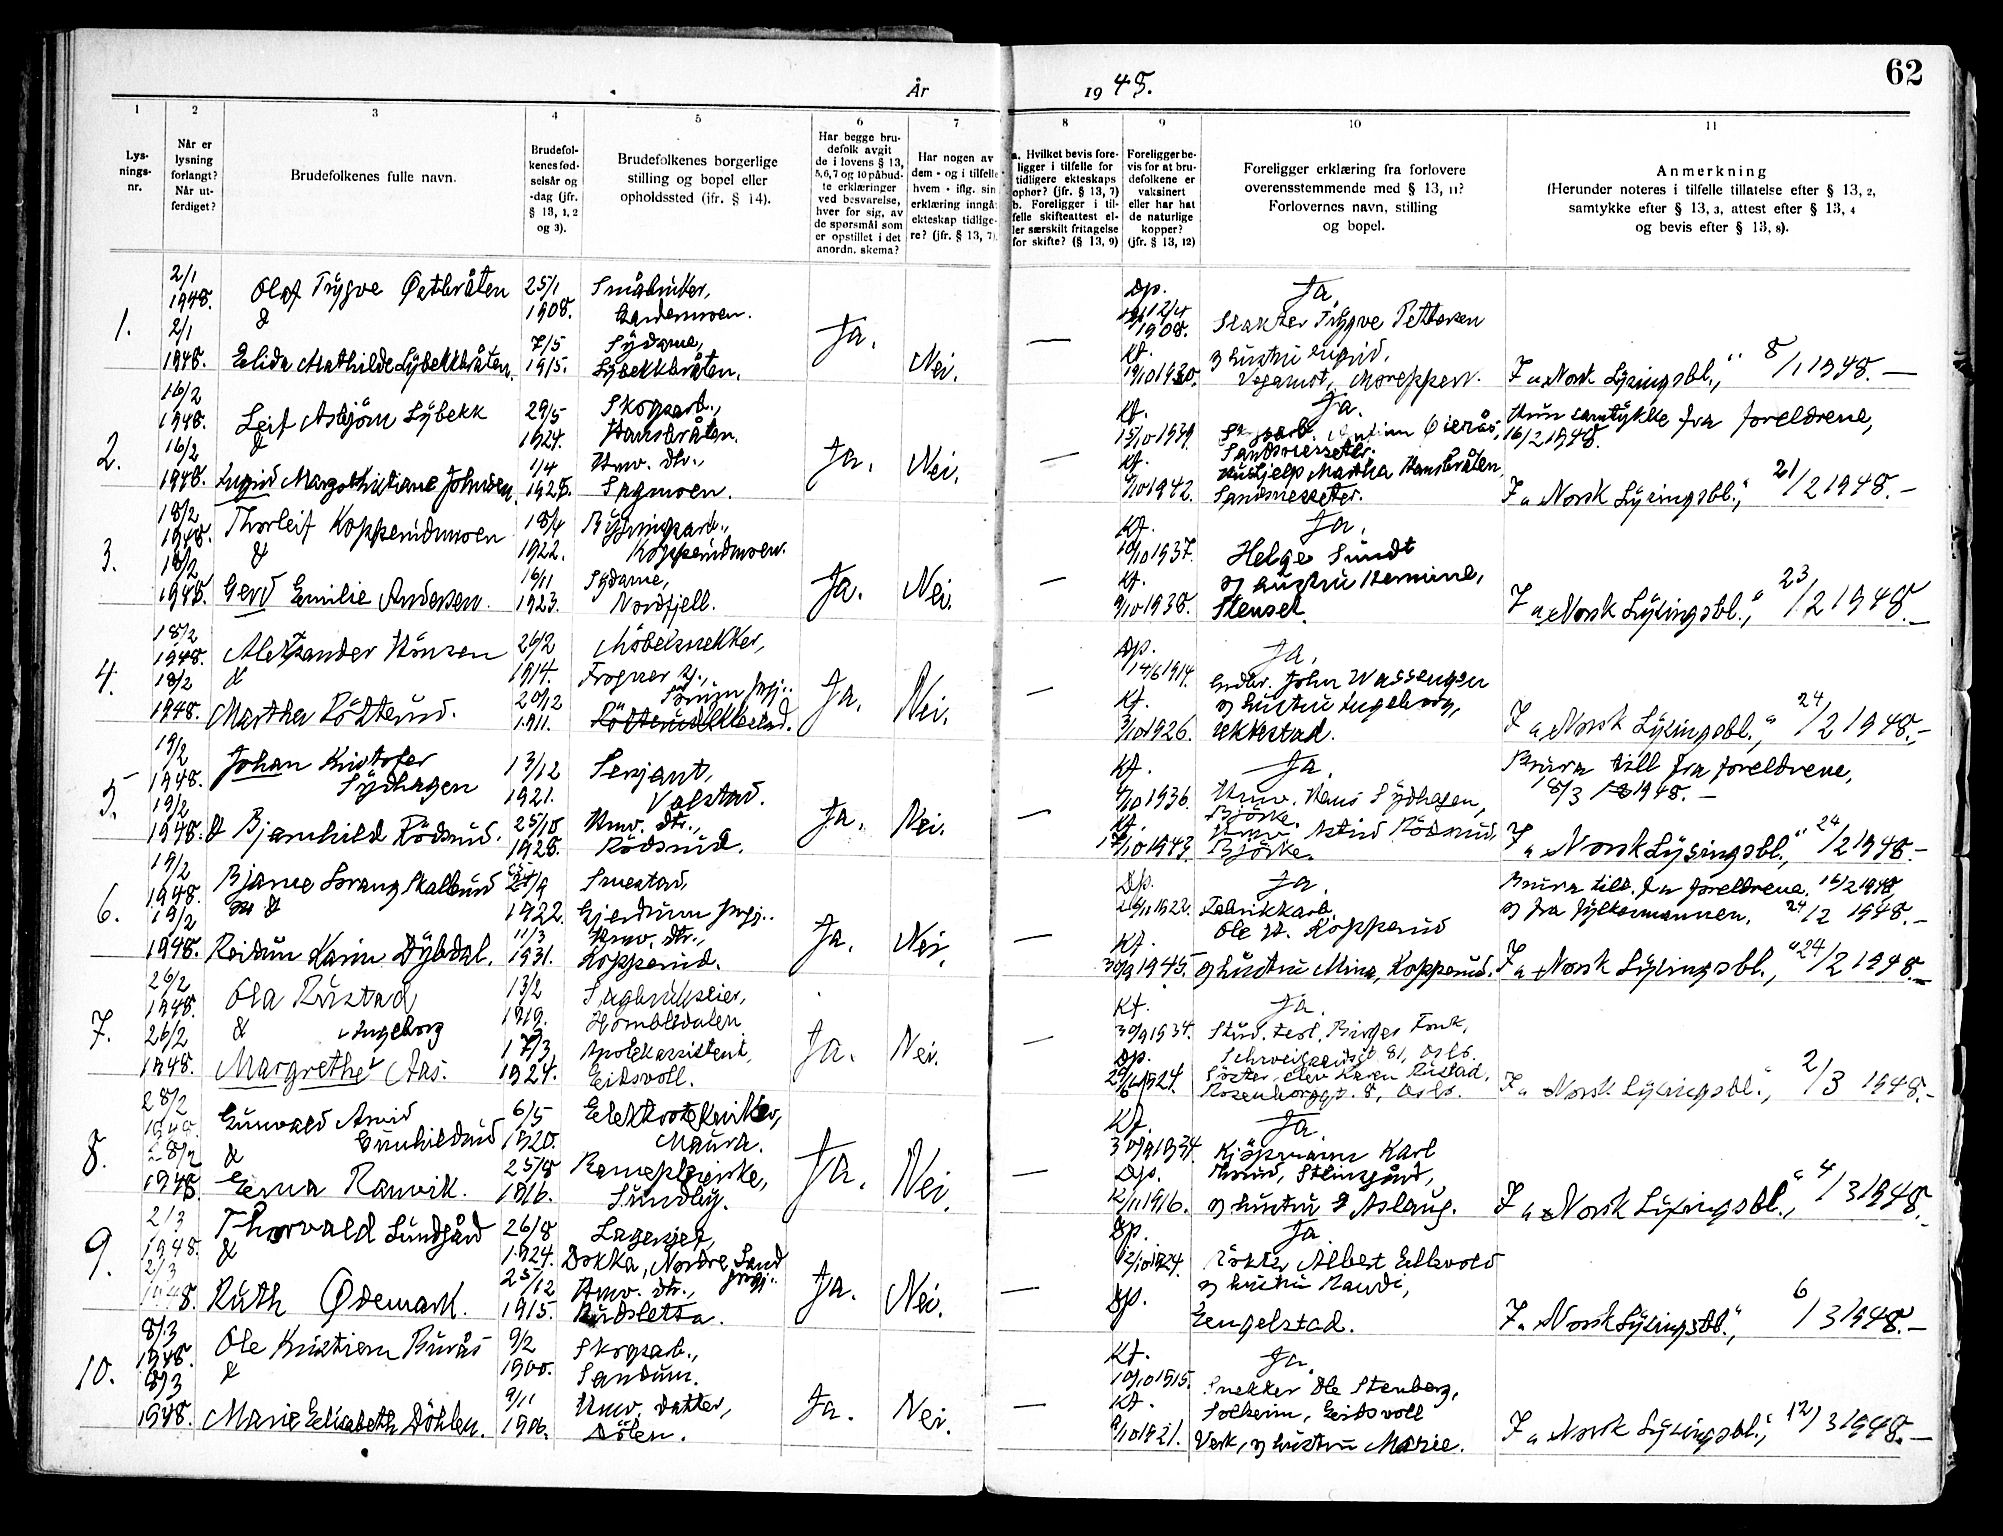 62
År 1948.
1 2 3 4 5 6 7 8 9 10 11
Lys-
nings-
nr.
Når er
lysning
forlangt?
Når ut-
ferdiget?
Brudefolkenes fulle navn.
Brudefol-
kenes fød-
selsår og
-dag (jfr.
§ 13, 1, 2
og 3).
Brudefolkenes borgerlige
stilling og bopel eller
opholdssted (jfr. § 14).
Har begge bru-
defolk avgit
de i lovens § 13,
5, 6, 7 og 10 påbud-
te erklæringer
ved besvarelse,
hver for sig, av
de spørsmål som
er opstillet i det
anordn. skema?
Har nogen av
dem - og i tilfelle
hvem - iflg. sin
erklæring inngå
ekteskap tidlige-
re? (jfr. § 13, 7).
a. Hvilket bevis fore-
ligger i tilfelle for
tidligere ekteskaps
ophør? (jfr. § 13, 7)
b. Foreligger i til-
felle skifteattest el-
ler særskilt fritagelse
for skifte? (§ 13, 9)
Foreligger be-
vis for at bru-
defolkene er
vaksinert
eller har hat
de naturlige
kopper?
(jfr. § 13, 12)
Foreligger erklæring fra forlovere
overensstemmende med § 13, 11?
Forlovernes navn, stilling
og bopel.
Anmerkning
(Herunder noteres i tilfelle tillatelse efter § 13, 2,
samtykke efter § 13, 3, attest efter § 13, 4
og bevis efter § 13, 8).
1.
2/1
1948.
2/1
1948.
Olaf Trygve Østbråten
&
Elida Mathilde Lybekkbråten.
25/1
1908.
7/5
1915.
Småbruker,
Gardermoen.
Sydame,
Lybekkbråten.
Ja.
Nei.
—
Dp.
12/4
1908.
Kf.
Ja.
Trygve Pettersen
og hustru Ingrid,
I „Norsk Lysingsbl.“ 8/1 1948.—
2.
16/2
1948.
16/2
1948.
Leif Asbjørn Lybekk
&
Ingrid Margot Kristiane Johnsen.
29/5
1924.
1/4
1928.
Skogsarb.,
Hansbråten.
Hmv. dtr.,
Sagmoen.
Ja.
Nei.
—
Kf.
15/10 1939.
Kf.
1942.
Ja.
Sandsnesseter.
Hushjelp Martha Hansbråten,
Sandsnesseter.
samtykke fra foreldrene,
16/2 1948.
I „Norsk Lysingsbl.“ 21/2 1948.—
3.
18/2
1948.
18/2
1948.
Thorleif Koppervdmoen
&
Gerd Emilie Andersen.
18/4
1922.
16/11
1923.
Bygningsarb.,
Sydame,
Nordfjell.
Ja.
Nei.
—
Kf.
10/10 1937.
Kf.
9/10 1938.
Ja.
Helge Sundt
og hustru Hermine,
Stenset.
I „Norsk Lysingsbl.“ 23/2 1948.—
4.
18/2
1948.
18/2
1948.
Aleksander Hönsen
&
Martha Rötterud.
26/2
1914.
20/12
1911.
Møbelsnekker,
Ja.
Nei.
—
Dp.
14/6 1914.
Kf.
3/10 1926.
Ja.
Grdbr. John Wassengen
og hustru Ingeborg,
Ukkestad.
I „Norsk Lysingsbl.“ 24/2 1948.—
5.
19/2
1948.
19/2
1948.
Johan Kristofer
Sydhagen
& Bjarnhild Rödsrud.
13/12
1921.
25/10
1928.
Sersjant,
Valstad.
Hmv. dtr.,
Rödsrud.
Ja.
Nei.
—
Kf.
4/10 1936.
Kf.
17/10 1943.
Ja.
Hmv. Hans Sydhagen,
Björke.
Hmv. Astrid Rödsrud,
Björke.
Brura till. fra foreldrene,
18/3 1948.—
I „Norsk Lysingsbl.“ 24/2 1948.—
6.
19/2
1948.
19/2
1948.
Bjarne Lorang Skallerud
&
Reidun Karin Dybdal.
1922.
11/3
1931.
Smestad,
Gjerdrum
Hmv. dtr.,
Kopperud.
Ja.
Nei.
—
Dp.
1922.
Kf.
30/9 1945.
Ja.
Fabrikkarb.
Ole H. Kopperud
og hustru Mina, Kopperud.
Brura till. fra foreldrene, 16/2 1948,
og fra fylkesmannen, 24/2 1948.—
I „Norsk Lysingsbl.“ 24/2 1948.—
7.
26/2
1948.
26/2
1948.
Ola Rustad
&
Ingeborg
Margrethe Aas.
13/2
1919.
17/3
1924.
Sagbrukseier,
Hombledalen
Apotekassistent,
Eidsvoll.
Ja.
Nei.
—
Kf.
30/9 1934.
Dp.
1924.
Ja.
Stud. Birger Fonk,
81, Oslo.
Söster, elev Karen Rustad,
Rosenborggt. 8, Oslo.
I „Norsk Lysingsbl.“ 2/3 1948.—
8.
28/2
1948.
28/2
1948.
Gunvald Arvid
Gunhildrud
&
Erna Ranvik.
6/5
1920.
25/8
1916.
Elektrotekniker,
Maura.
Barnepleierske,
Sundby.
Ja.
Nei.
—
Kf.
30/9 1934.
Dp.
12/11 1916.
Ja.
Kjöpmann Karl
og hustru Aslaug.
I „Norsk Lysingsbl.“ 4/3 1948.—
9.
2/3
1948.
2/3
1948.
Thorvald Lundgård
&
Ruth Ødemark.
26/8
1924.
25/12
1915.
Lagersjef,
Dokka, Nordre Land
Hmv. dtr.,
Rudsletta.
Ja.
Nei.
—
Dp.
12/10 1924.
Dp.
Ja.
Albert Ellevold
og hustru Randi,
Engelstad.
I „Norsk Lysingsbl.“ 6/3 1948.—
10.
8/3
1948.
8/3
1948.
Ole Kristian Burås
&
Marie Elisabeth Döhlen.
9/2
1900.
9/11
1906.
Skogsarb.,
Sandum.
Hmv. datter,
Dölen.
Ja.
Nei.
—
Kf.
10/10 1915.
Kf.
9/10 1921.
Ja.
Snekker Ole Stenberg,
Solheim, Eidsvoll
Verk, og hustru Marie.
I „Norsk Lysingsbl.“ 12/3 1948.—